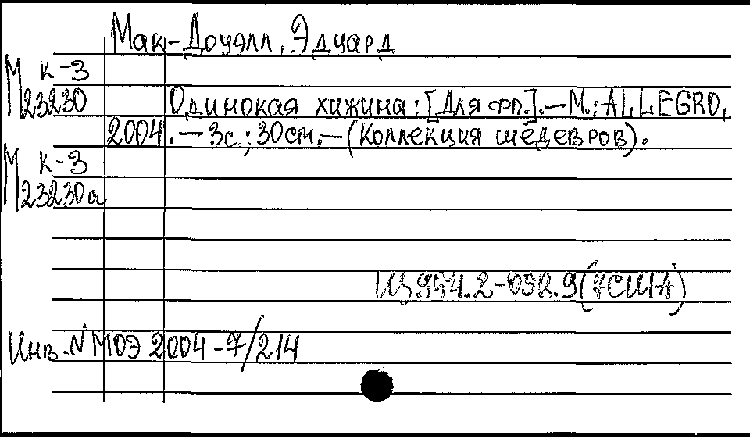 Мак-Доуэлл, Эдуард
М к-3
23230
Одинокая хижина: [Для фп.]. – М.: ALLEGRO,
2004. – 3с.; 30см. – (Коллекция шедевров).
М к-3
23230а
Щ954.2-
Инв. N МОЭ 2004-7/214